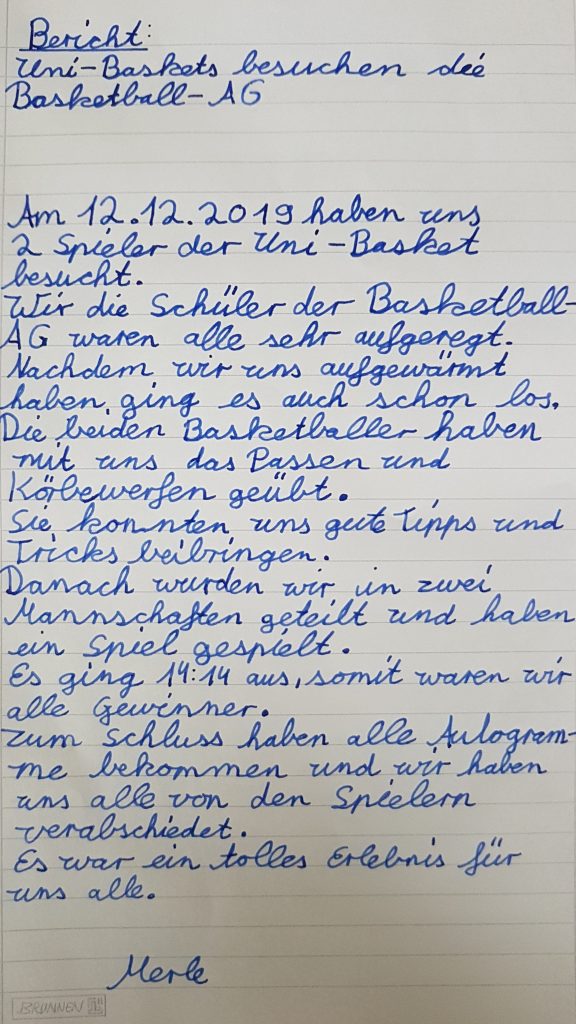 Bericht:
Uni-Baskets besuchen die
Basketball-AG
Am 12.12.2019 haben uns
2 Spieler der Uni-Basket
besucht.
Wir die Schüler der Basketball-
AG waren alle sehr aufgeregt.
Nachdem wir uns aufgewärmt
haben, ging es auch schon los.
Die beiden Basketballer haben
mit uns das Passen und
Körbewerfen geübt.
Sie konnten uns gute Tipps und
Tricks beibringen.
Danach wurden wir in zwei
Mannschaften geteilt und haben
ein Spiel gespielt.
Es ging 14:14 aus, somit waren wir
alle Gewinner.
Zum Schluss haben alle Autogram-
me bekommen und wir haben
uns alle von den Spielern
verabschiedet.
Es war ein tolles Erlebnis für
uns alle.
Merle
BRUNNEN